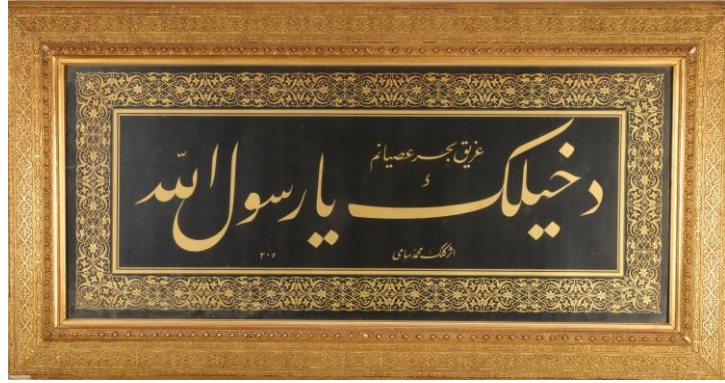 غريق بحر عصيانم
دخيلك يا رسول الله
اثر كلك محمد سامى
٣٠٥